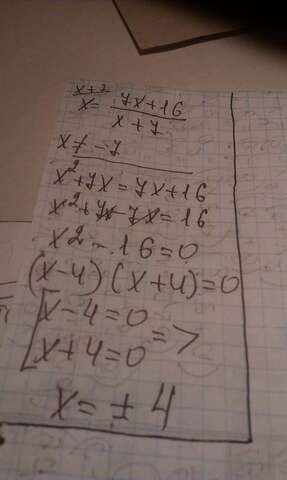 x+7
x = 7x+16 / x+7
x ≠ -7
x² + 7x = 7x + 16
x² + 7x - 7x = 16
x² - 16 = 0
(x-4) (x+4) = 0
[x-4=0
x+4=0 =>
x = ±4